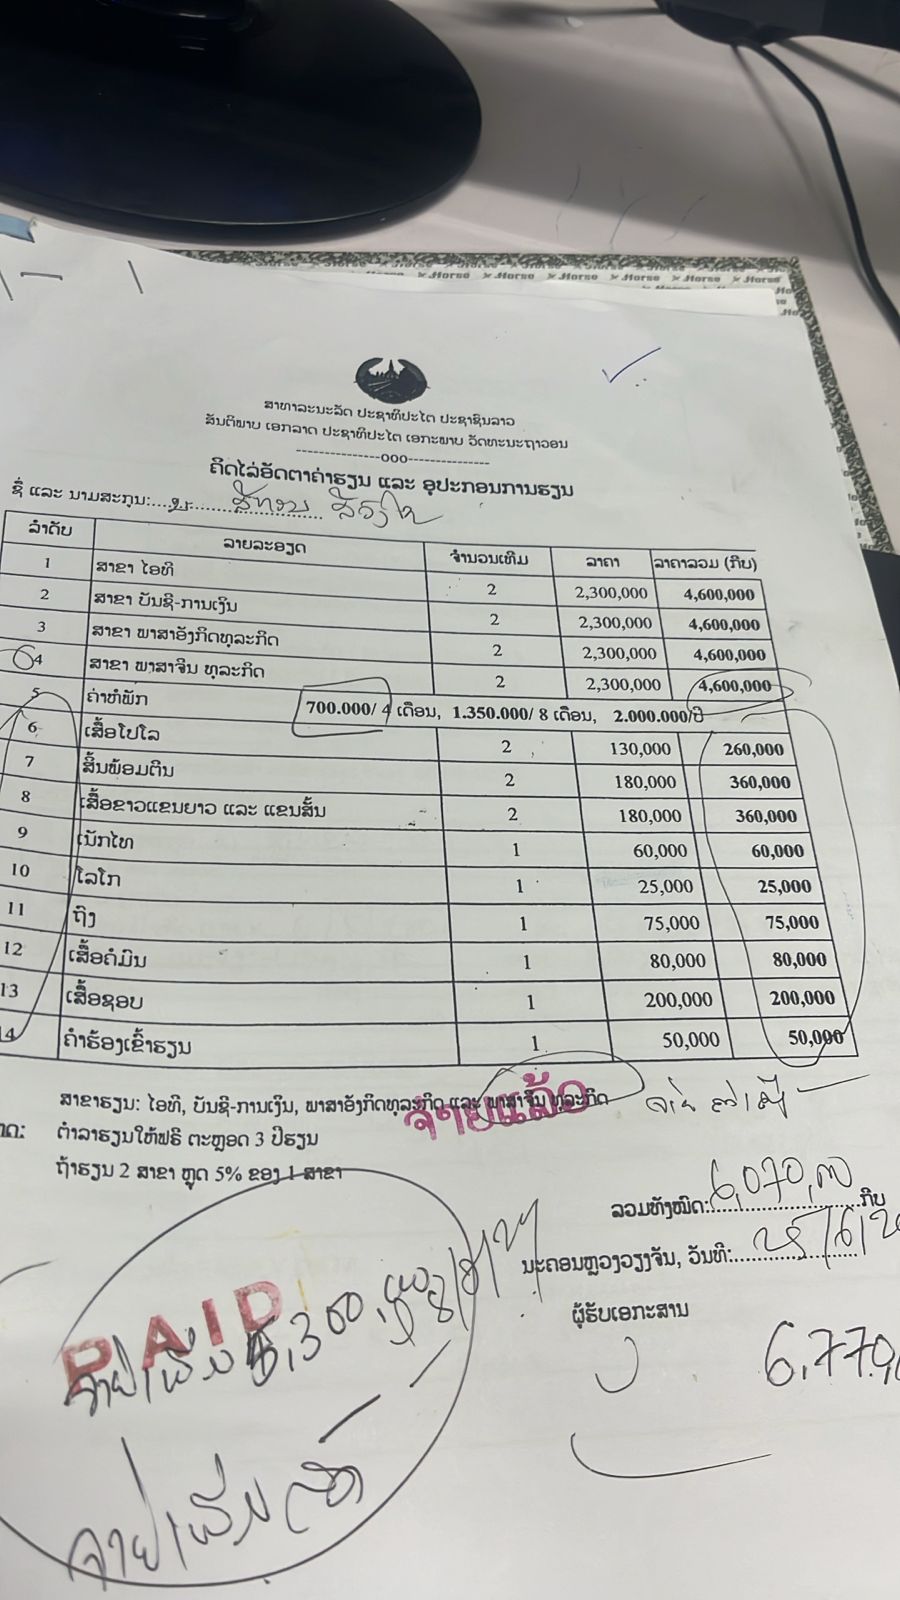 Horse Horse Horse Horse Horse
ສາທາລະນະລັດ ປະຊາທິປະໄຕ ປະຊາຊົນລາວ
ສັນຕິພາບ ເອກລາດ ປະຊາທິປະໄຕ ເອກະພາບ ວັດທະນະຖາວອນ
---------------ooo---------------
ຄິດໄລ່ອັດຕາຄ່າຮຽນ ແລະ ອຸປະກອນການຮຽນ
ຊື່ ແລະ ນາມສະກຸນ:
ລຳດັບ ລາຍລະອຽດ ຈຳນວນເທີມ ລາຄາ ລາຄາລວມ (ກີບ)
1 ສາຂາ ໄອທີ 2 2,300,000 4,600,000
2 ສາຂາ ບັນຊີ-ການເງິນ 2 2,300,000 4,600,000
3 ສາຂາ ພາສາອັງກິດທຸລະກິດ 2 2,300,000 4,600,000
4 ສາຂາ ພາສາຈີນ ທຸລະກິດ 2 2,300,000 4,600,000
5 ຄ່າຫໍພັກ 700.000/ 4 ເດືອນ, 1.350.000/ 8 ເດືອນ, 2.000.000/ປີ
6 ເສື້ອໂປໂລ 2 130,000 260,000
7 ສິ້ນພ້ອມຕີນ 2 180,000 360,000
8 ເສື້ອຂາວແຂນຍາວ ແລະ ແຂນສັ້ນ 2 180,000 360,000
9 ເນັກໄທ 1 60,000 60,000
10 ໂລໂກ 1 25,000 25,000
11 ຖົງ 1 75,000 75,000
12 ເສື້ອຄໍມົນ 1 80,000 80,000
13 ເສື້ອຊອບ 1 200,000 200,000
14 ຄຳຮ້ອງເຂົ້າຮຽນ 1 50,000 50,000
ສາຂາຮຽນ: ໄອທີ, ບັນຊີ-ການເງິນ, ພາສາອັງກິດທຸລະກິດ ແລະ ພາສາຈີນ ທຸລະກິດ
ຈ່າຍແລ້ວ
ຕຳລາຮຽນໃຫ້ຟຣີ ຕະຫຼອດ 3 ປີຮຽນ
ຖ້າຮຽນ 2 ສາຂາ ຫຼຸດ 5% ຂອງ 1 ສາຂາ
ລວມທັງໝົດ: 6,070,000 ກີບ
ນະຄອນຫຼວງວຽງຈັນ, ວັນທີ:
ຜູ້ຮັບເອກະສານ
PAID
6,770,